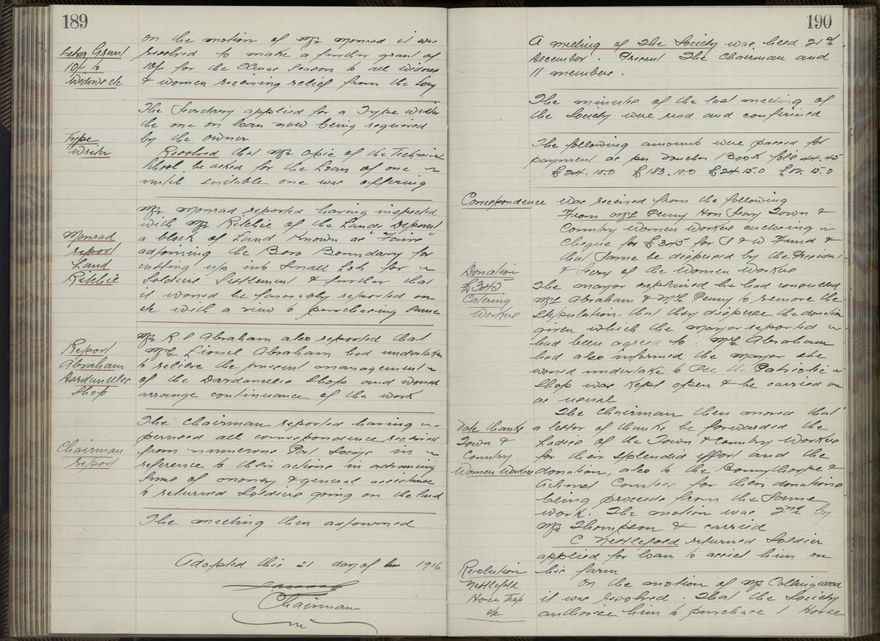 189
On the motion of Mr Monrad it was
Extra Grant
resolved to make a further grant of
10/- to
10/- for the Xmas Season to all Widows
Widows etc
& women receiving relief from the Socy
The Secretary applied for a Type writer
the one on loan now being required
Type
by the owner
writer
Resolved that Mr Opie of the Technical
School be asked for the Loan of one
until suitable one was offering
Mr Monrad reported having inspected
with Mr Ritchie of the Lands Department
Monrad
a block of Land known as
report
adjoining the Boro Boundary for
Land
cutting up into Small Lots for
Ritchie
Soldiers Settlement & further that
it would be favorably reported on
etc with a view to purchasing same
Mr R S Abraham also reported that
Report
Mrs Lionel Abraham had undertaken
Abraham
to relieve the present management
Dardanelles
of the Dardanelles Shop and would
Shop
arrange continuance of the work
The Chairman reported having
perused all correspondence received
Chairman
from numerous Pat Socys in
report
reference to their actions in advancing
sums of money & general assistance
to returned Soldiers going on the land
The meeting then adjourned
Adopted this 21 day of 1916
Chairman
190
A meeting of the Society was held 21st
December. Present The Chairman and
11 members.
The minutes of the last meeting of
the Society were read and confirmed
The following amounts were passed for
payment as per Voucher Book
£24.10.0 £183.10.0 £24.15.0 £12.15.0
Correspondence was received from the following
From Mrs Penny Hon Secy Town &
Country Women Workers enclosing
Cheque for £345 for & W Fund &
that same be dispersed by the President
Donation
& Secy of the Women Workers
£345
The mayor explained he had consulted
Catering
Mrs Abraham & Mrs Penny to remove the
Workers
Stipulation that they disperse the donation
given which the mayor reported
had been agreed to. Mrs Abraham
had also informed the mayor she
would undertake to see the Patriotic
Shop was kept open & be carried on
as usual
The Chairman then moved that
Vote thanks
a letter of thanks be forwarded the
Town &
Ladies of the Town & Country Workers
Country
for their splendid effort and the
Women Workers
donation, also to the Bonnythorpe &
Comtees for their donations
being proceeds from the same
work. The motion was 2nd by
Mr Thompson & carried
C Nettlefold returned Soldier
applied for loan to assist him on
Resolution
his farm
Nettlefold
On the motion of Mr Collingwood
Horse Trap
it was resolved. That the Society
etc
authorise him to purchase 1 Horse